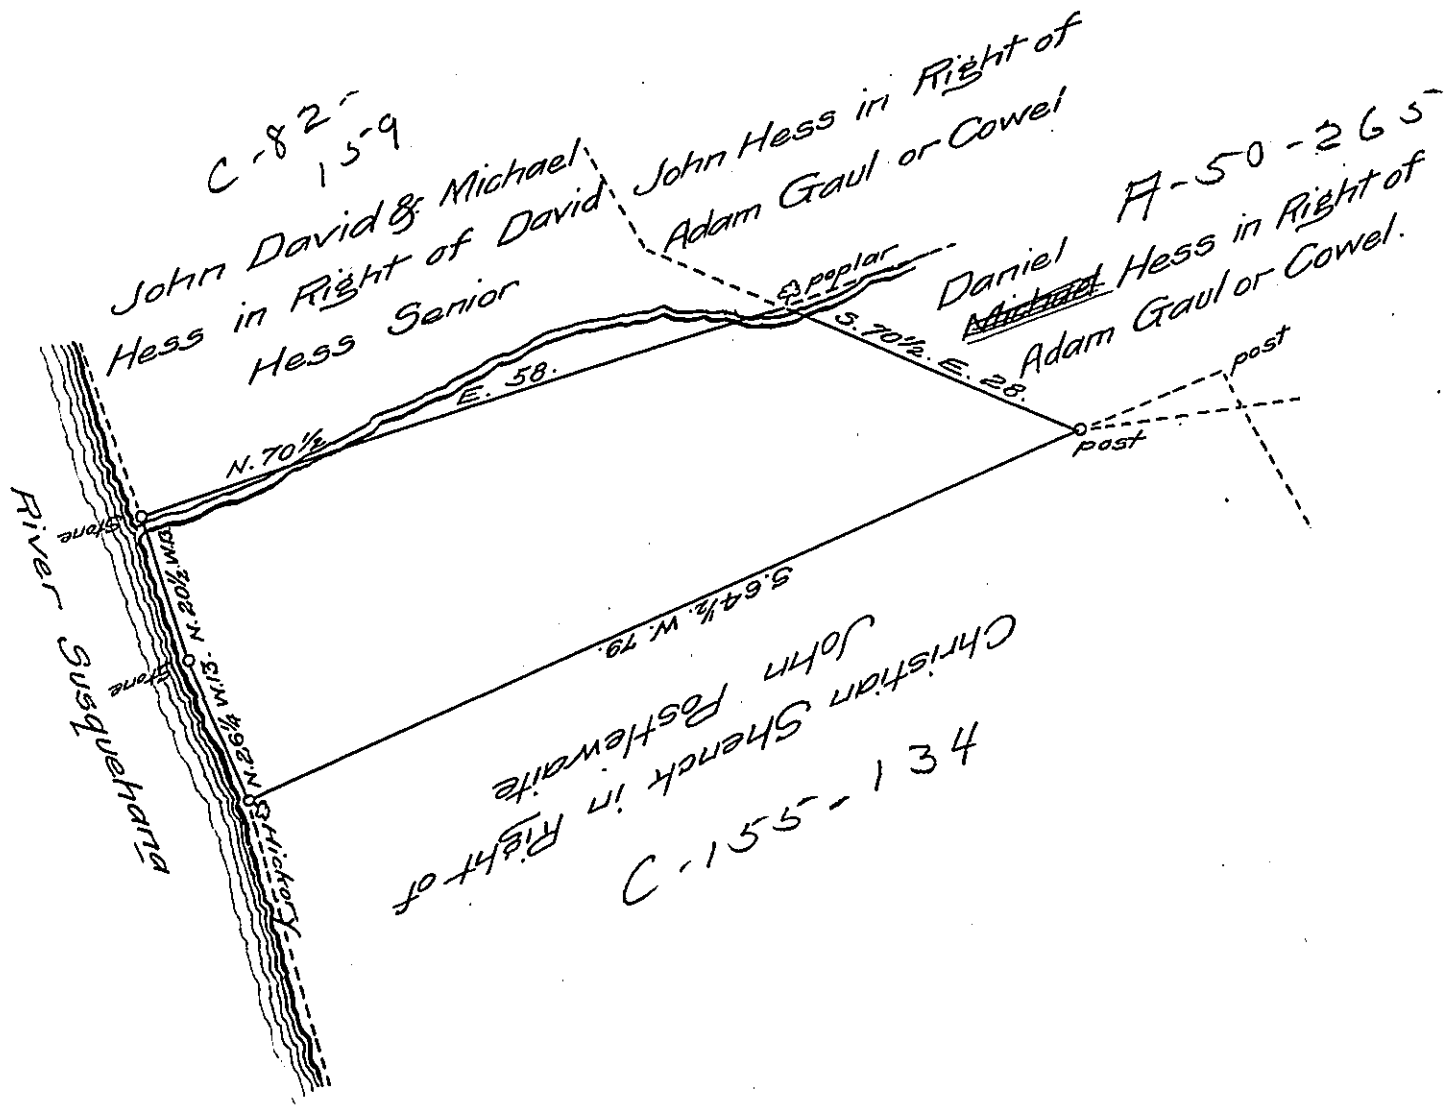 C-82-
159
John David & Michael
Hess in Right of David
Hess Senior
John Hess in Right of
Adam Gaul or Cowel
A-50-265
Daniel
Michael Hess in Right of
Adam Gaul or Cowel.
poplar
post
post
N. 70½ E. 58.
S. 70½. E. 28.
S. 64½. W. 79.
Stone
N. 20½ W. 13.
Stone
N. 26¼ W. 13.
Hickory
River Susquehana
Christian Shenck in Right of
John Postlewaite
C-155-134